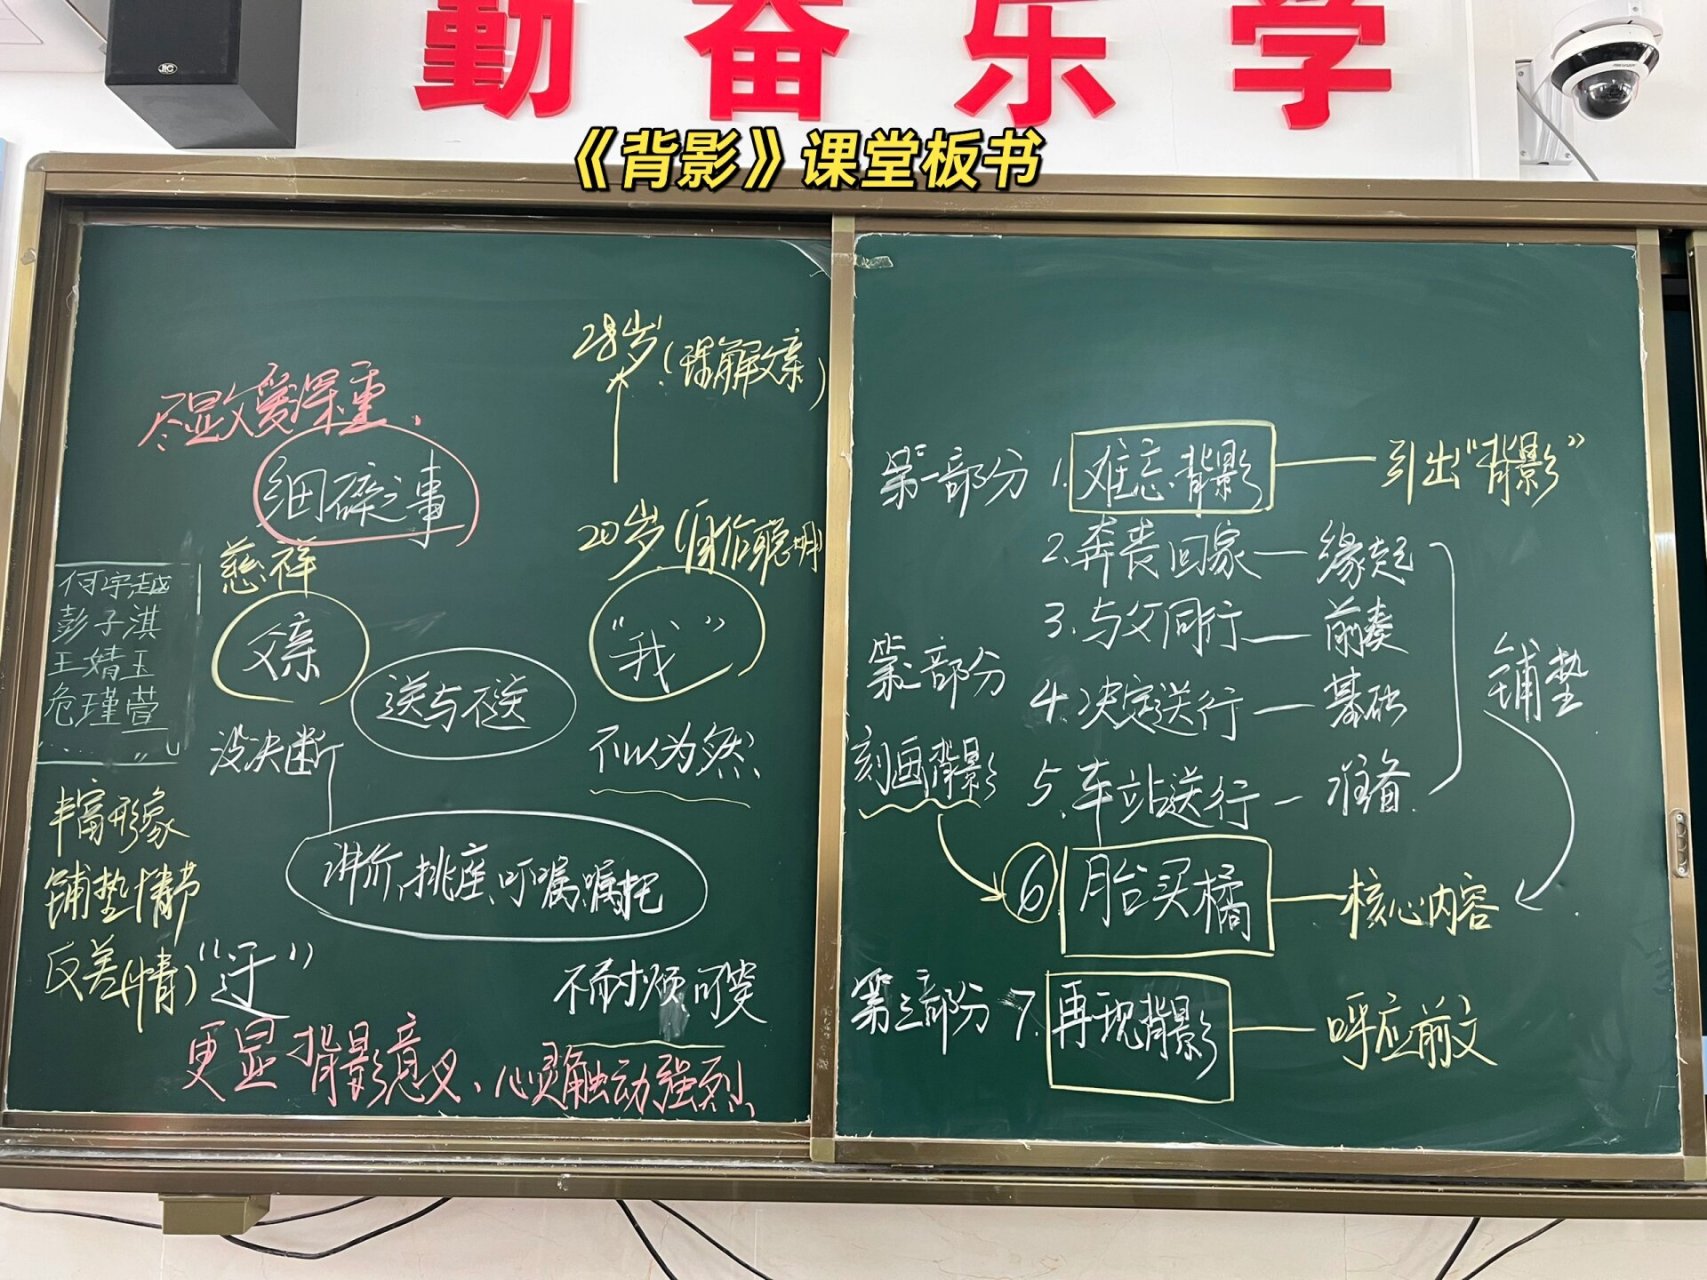 勤奋乐学
《背影》课堂板书
28岁(理解父亲)
尽显父爱深重、
细碎之事
20岁(自作聪明)
慈祥
父亲
"我"
送与不送
何宇越
彭子淇
王婧玉
危瑾萱
......"
没决断
不以为然
讲价、挑座、叮嘱、嘱托
丰富形象
铺垫情节
反差(情)
"迂"
不耐烦 可笑
更显背影意义、心灵触动强烈
第一部分 1.难忘背影——引出"背影"
2.奔丧回家—缘起
3.与父同行—前奏
第二部分
4.决定送行—基础
铺垫
刻画背影
5.车站送行—准备
⑥月台买橘——核心内容
第三部分 7.再现背影——呼应前文